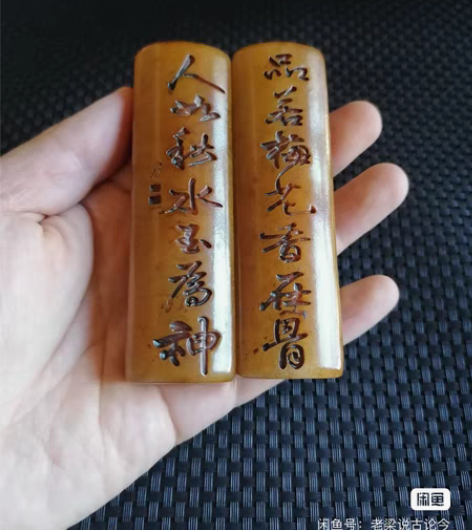 品若梅花香在骨
人如秋水玉為神
闲鱼
闲鱼号：老梁说古论今